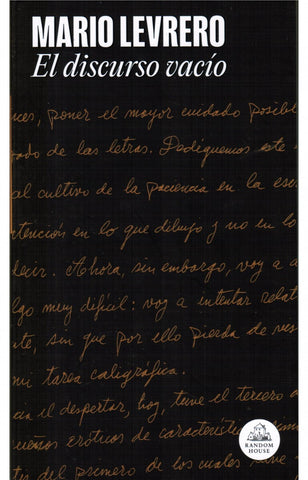 MARIO LEVRERO
El discurso vacío
ces, poner el mayor cuidado posibl
ado de las letras. Dediquemos este
al cultivo de la paciencia en la esc
tención en lo que dibujo y no en lo
decir. Ahora, sin embargo, voy a a
lgo muy difícil: voy a intentar relat
te, sin que por ello pierda de vis
mi tarea caligráfica.
cia el despertar, hoy, tuve el tercero d
ueños eróticos de característic
tes del primero de los cuales tuve
RANDOM
HOUSE